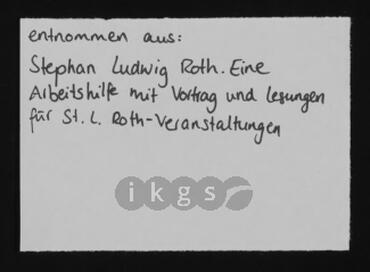 entnommen aus:
Stephan Ludwig Roth. Eine
Arbeitshilfe mit Vortrag und Lesungen
für St. L. Roth-Veranstaltungen
ikgs